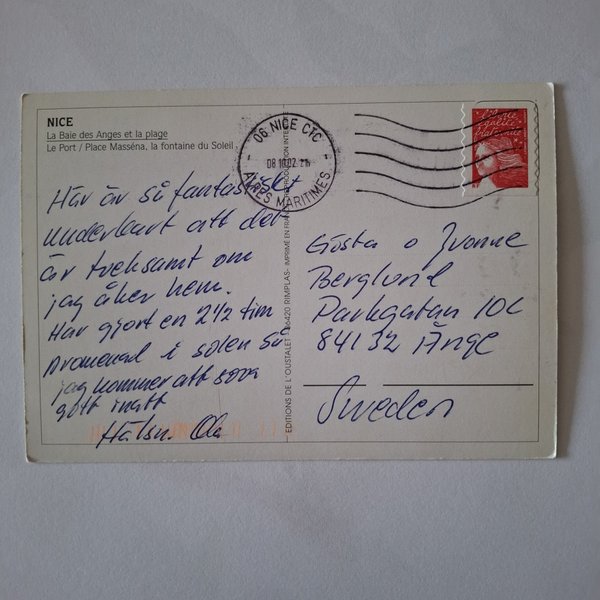 NICE
La Baie des Anges et la plage
Le Port / Place Masséna, la fontaine du Soleil
06 NICE CTC
08 10.02
ALPES MARITIMES
Liberté
égalité
fraternité
Här är så fantastiskt
underbart att det
är tveksamt om
jag åker hem.
Har gjort en 2½ tim
promenad i solen så
jag kommer att sova
gott inatt
Hälsn. Ola
EDITIONS DE L'OUSTALET - 06420 RIMPLAS- IMPRIMÉ EN FRANCE REPRODUCTION INTER
Gösta o Yvonne
Berglund
Parkgatan 10C
84132 Ånge
Sweden